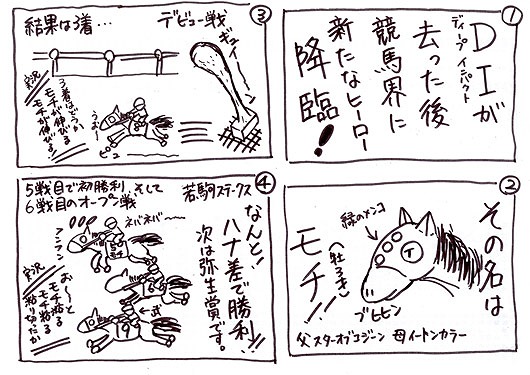 ①
DIが
ディープインパクト
去った後
競馬界に
新たなヒーロー
降臨！
②
その名は
モチ!!
(牡3才)
緑のメンコ
ブヒヒン
父スターオブコジーン 母イートンカラー
③
デビュー戦
結果は3着…
ギュイーン
うおー
ピュー
実況
3着はどうか
モチが伸びる
モチが伸びる
④
若駒ステークス
5戦目で初勝利、そして
6戦目のオープン戦
なんと!
ハナ差で勝利!!
次は弥生賞です。
ネバネバ〜
アンラン
モチ
6
9
武
実況
お〜と
モチ粘る
モチ粘る
粘り切ったか